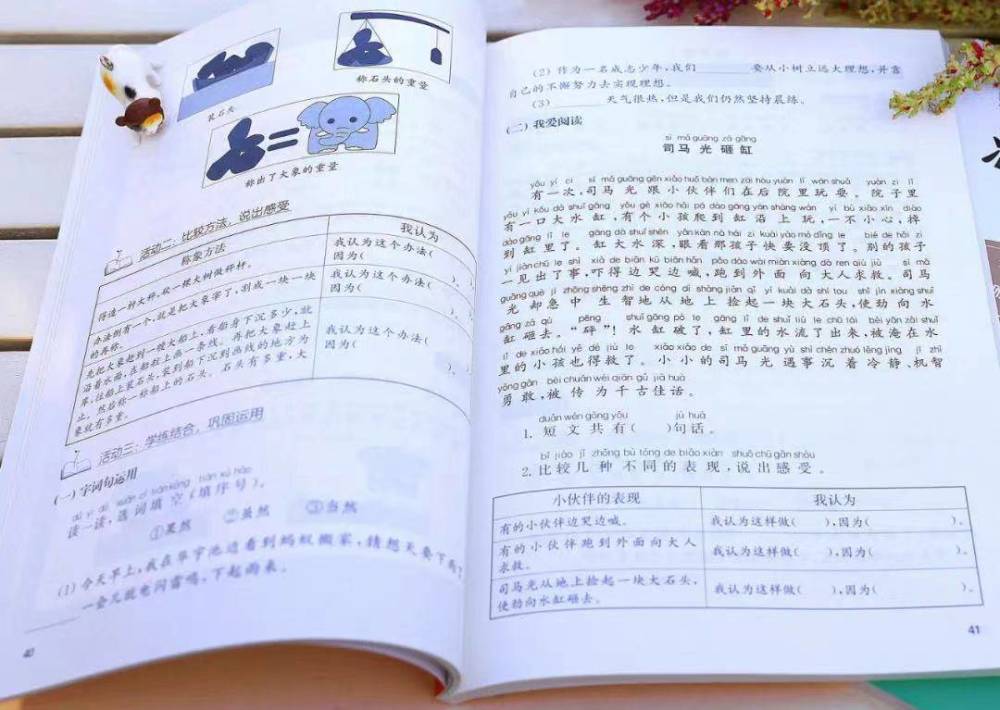 装石头
称石头的重量
=
称出了大象的重量
活动二：比较方法，说出感受
称象方法
我认为
得造一杆大秤，砍一棵大树做秤杆。
我认为这个办法( )，
因为( )。
办法倒有一个，就是把大象宰了，割成一块一块
的再称。
我认为这个办法( )，
因为( )。
先把大象赶到一艘大船上，看船身下沉多少，就
沿着水面，在船舷上画一条线。再把大象赶上
岸，往船上装石头，装到船下沉到画线的地方为
止。然后称一称船上的石头。石头有多重，大
象就有多重。
我认为这个办法(
因为( )。
活动三：学练结合，巩固运用
(一) 字词句运用
dú yi dú xuǎn cí tián kòng tián xù hào
读一读，选词填空(填序号)。
①果然 ②虽然 ③当然
(1) 今天早上，我在草宇池边看到蚂蚁搬家，猜想天要下雨，
一会儿就电闪雷鸣，下起雨来。
40
(2) 作为一名成志少年，我们 要从小树立远大理想，并靠
自己的不懈努力去实现理想。
(3) 天气很热，但是我们仍然坚持晨练。
(二) 我爱阅读
sī mǎ guāng zá gāng
司马光砸缸
yǒu yí cì sī mǎ guāng gēn xiǎo huǒ bàn men zài hòu yuàn lǐ wán shuǎ yuàn zi lǐ
有一次，司马光跟小伙伴们在后院里玩耍。院子里
yǒu yì kǒu dà shuǐ gāng yǒu gè xiǎo hái pá dào gāng yán shàng wán yí bù xiǎo xīn diào
有一口大水缸，有个小孩爬到缸沿上玩，一不小心，掉
dào gāng lǐ le gāng dà shuǐ shēn yǎn kàn nà hái zi kuài yào mò dǐng le bié de hái zi
到缸里了。缸大水深，眼看那孩子快要没顶了。别的孩子
yí jiàn chū le shì xià de biān kū biān hǎn pǎo dào wài miàn xiàng dà ren qiú jiù sī mǎ
一见出了事，吓得边哭边喊，跑到外面向大人求救。司马
guāng què jí zhōng shēng zhì de cóng dì shàng jiǎn qǐ yí kuài dà shí tou shǐ jìn xiàng shuǐ
光却急中生智地从地上捡起一块大石头，使劲向水
gāng zá qù pēng shuǐ gāng pò le gāng lǐ de shuǐ liú le chū lái bèi yān zài shuǐ
缸砸去。“砰”！水缸破了，缸里的水流了出来，被淹在水
lǐ de xiǎo hái yě dé jiù le xiǎo xiǎo de sī mǎ guāng yù shì chén zhuó lěng jìng jī zhì
里的小孩也得救了。小小的司马光遇事沉着冷静、机智
yǒng gǎn bèi chuán wéi qiān gǔ jiā huà
勇敢，被传为千古佳话。
duǎn wén gòng yǒu jù huà
1. 短文共有( )句话。
bǐ jiào jǐ zhǒng bù tóng de biǎo xiàn shuō chū gǎn shòu
2. 比较几种不同的表现，说出感受。
小伙伴的表现 我认为
有的小伙伴边哭边喊。 我认为这样做( )，因为( )。
有的小伙伴跑到外面向大人
求救。
我认为这样做( )，因为( )。
司马光从地上捡起一块大石头，
使劲向水缸砸去。
我认为这样做( )，因为( )。
41